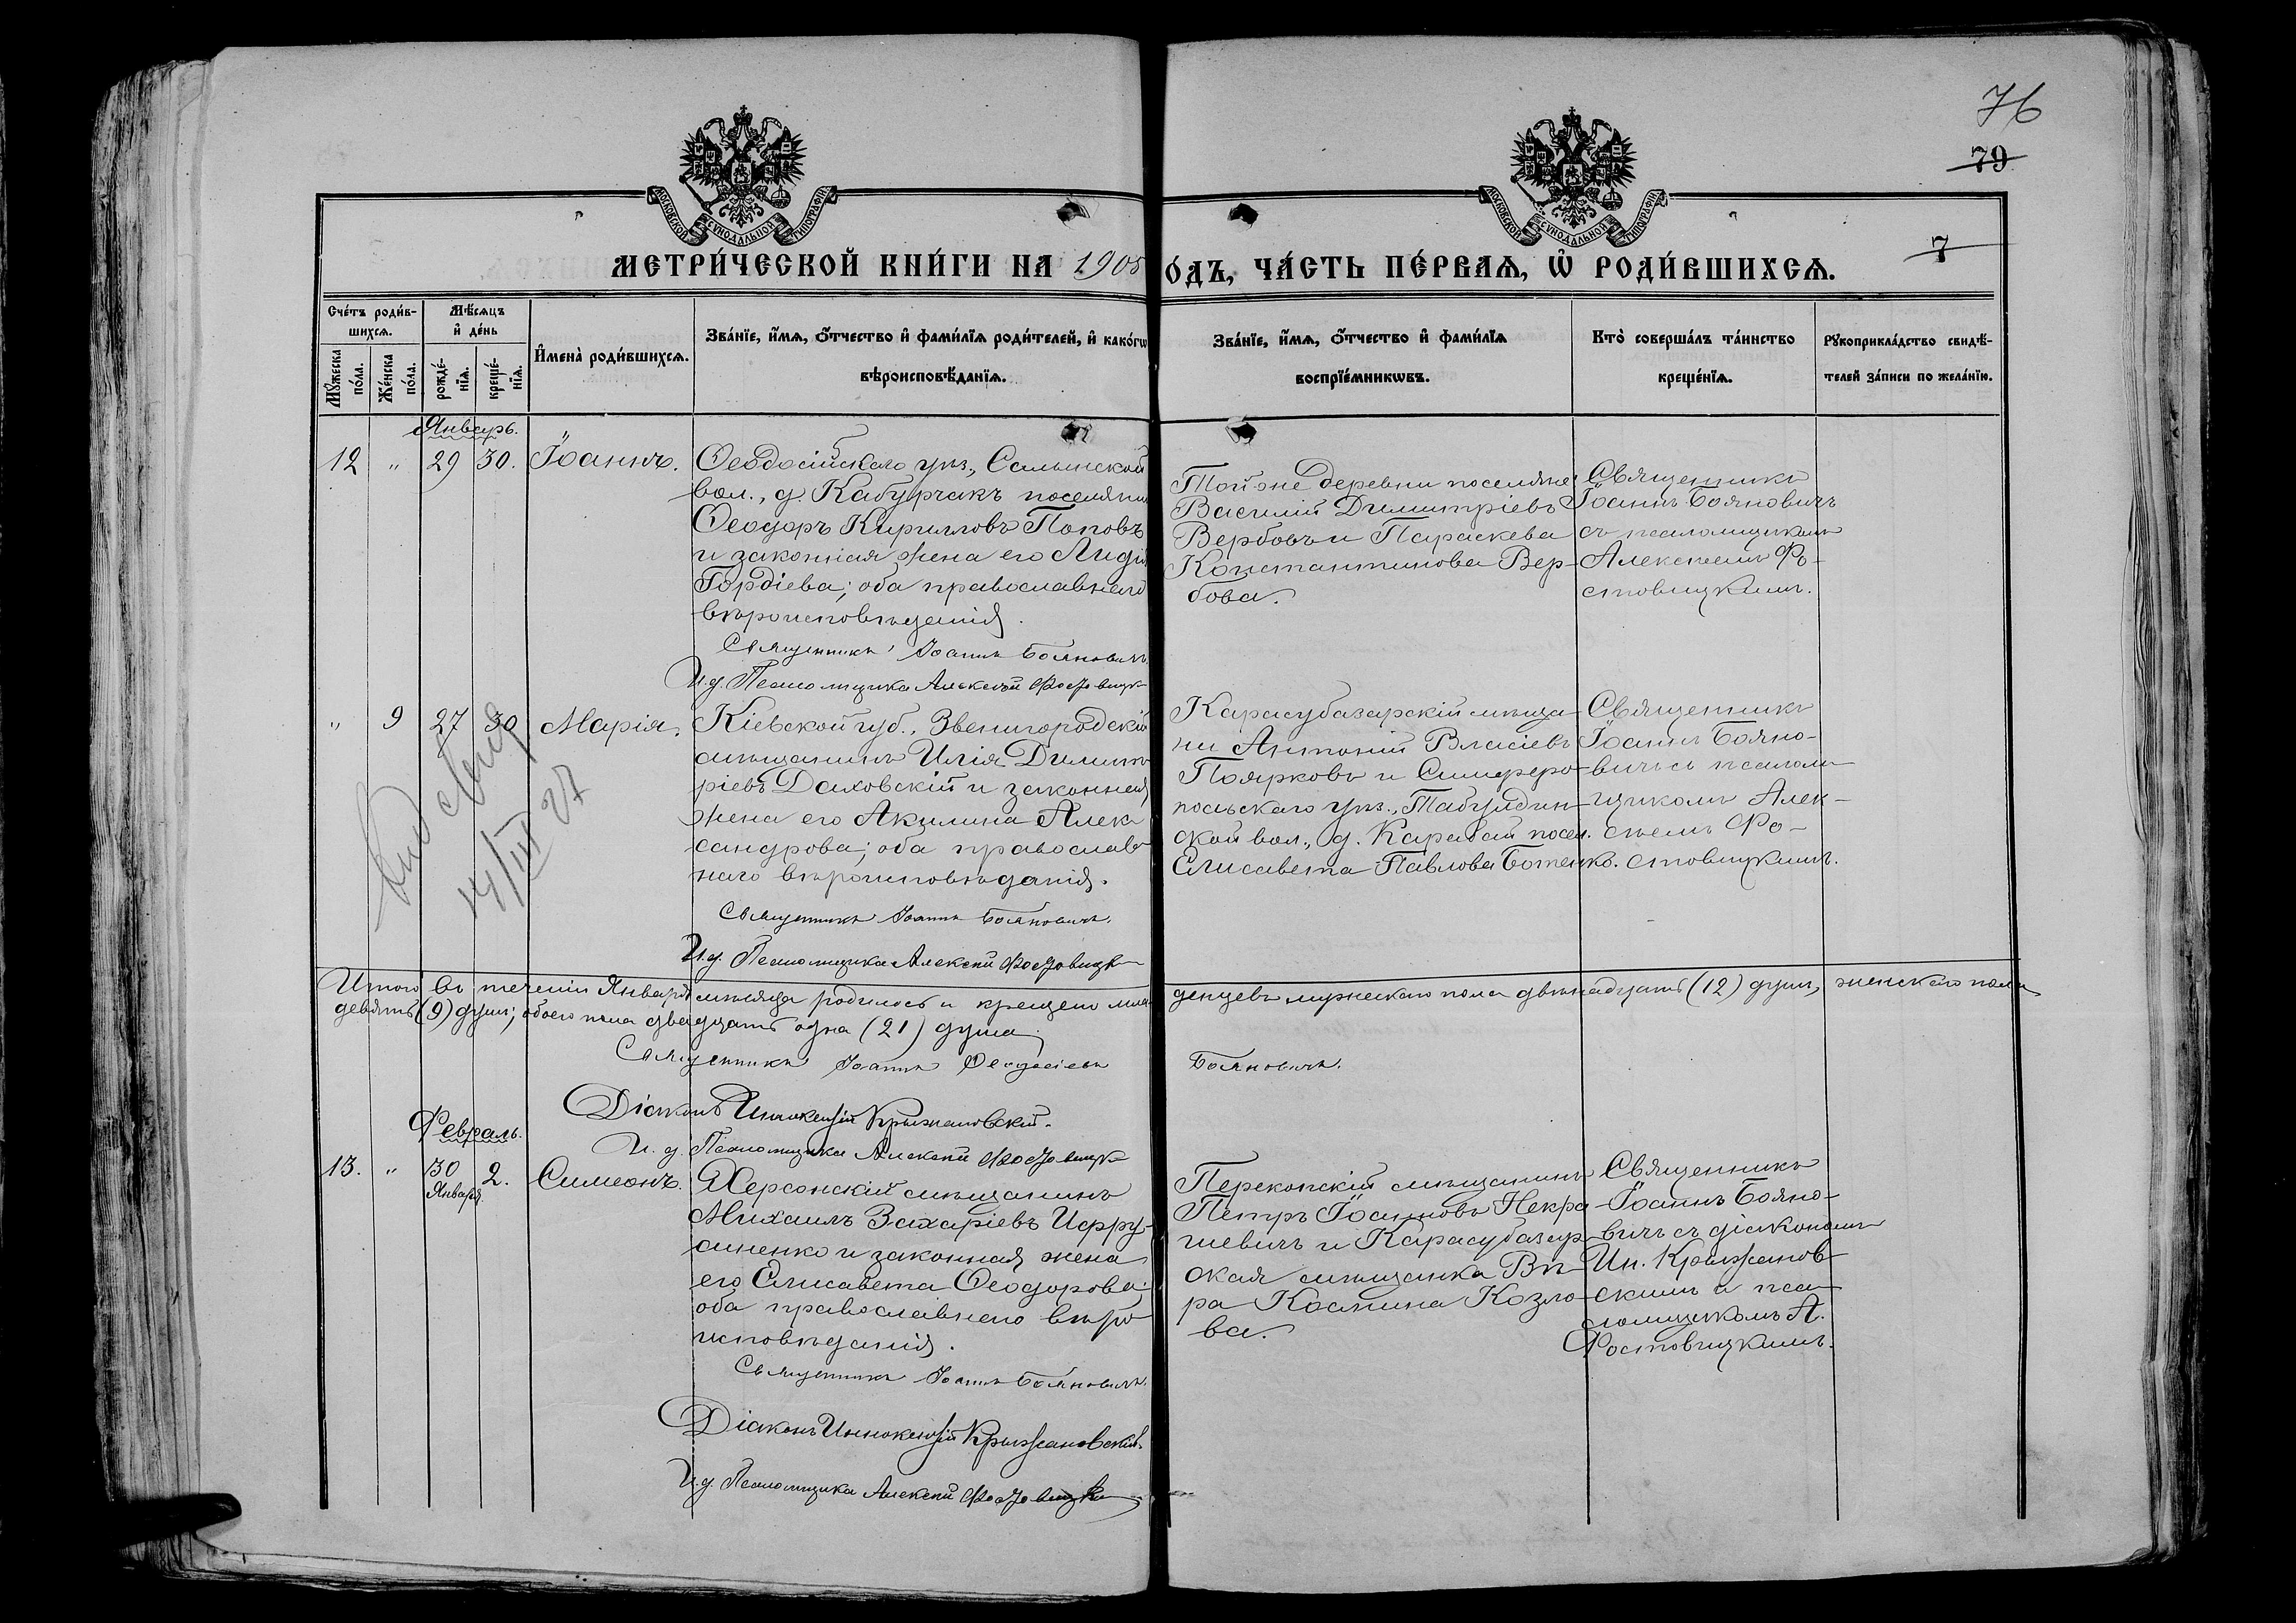 76
79
7
МОСКОВСКОЙ СУНОДАЛЬНОЙ ТИПОГРАФІИ
МОСКОВСКОЙ СУНОДАЛЬНОЙ ТИПОГРАФІИ
МЕТРИ́ЧЕСКОЙ КНИ́ГИ НА 1905
О́ДЪ, ЧА́СТЬ ПЕ́РВАѦ, Ѡ҆ РОДИ́ВШИХСѦ.
Сче́тъ роди́в-
шихсѧ.
Мꙋ́жеска по́ла.
Же́нска по́ла.
Мѣ́сѧцъ
и҆ де́нь
рожде́-
нїѧ.
креще́-
нїѧ.
И҆мена̀ роди́вшихсѧ.
Зва́нїе, и҆́мѧ, ѻ҆́тчество и҆ фами́лїѧ роди́телей, и҆ како́гѡ
вѣроисповѣ́данїѧ.
Зва́нїе, и҆́мѧ, ѻ҆́тчество и҆ фами́лїѧ
воспрїе́мникѡвъ.
Кто̀ соверша́лъ та́инство
креще́нїѧ.
Рꙋкоприкла́дство свидѣ́-
телей за́писи по жела́нїю.
Январь.
12 " 29 30. Іоаннъ.
Ѳеодосійскаго уѣз., Салынской
вол., д. Кабурчакъ поселянин
Ѳеодоръ Кирилловъ Поповъ
и законная жена его Лидія
Гордіева; оба православнаго
вѣроисповѣданія.
Священникъ Іоаннъ Бояновичъ
И.д. Псаломщика Алексѣй Фостовицк
Той же деревни поселяне
Василій Димитріевъ
Вербовъ и Параскева
Константинова Вер-
бова.
Священникъ
Іоаннъ Бояновичъ
съ псаломщикомъ
Алексѣемъ Фо-
стовицкимъ.
" 9 27 30 Марія.
Кіевской губ., Звенигородскій
мѣщанинъ Илія Димит
ріевъ Даховскій и законная
жена его Акилина Алек
сандрова; оба православ
наго вѣроисповѣданія.
Священникъ Іоаннъ Бояновичъ.
И.д. Псаломщика Алексѣй Фостовицк
Карасубазарскій мѣща-
нин Антоній Власіевъ
Поярковъ и Симферо-
польскаго уѣз., Табулдин-
ской вол., д. Карабай посел.
Елисавета Павлова Ботенко.
Священникъ
Іоаннъ Бояно-
вичъ съ псалом-
щикомъ Алек-
сѣемъ Фо-
стовицкимъ.
14/III 27
Итого въ теченіи Января мѣсяца родилось и крещено мла
денцевъ мужескаго пола двѣнадцать (12) душъ, женскаго пола
девять (9) душъ; обоего пола двадцать одна (21) душа.
Священникъ Іоаннъ Ѳеодосіевъ
Бояновичъ.
Діаконъ Иннокентій Крыжановскій.
И. д. Псаломщика Алексѣй Фостовицк
Февраль.
13. " 30 Января 2. Симеонъ.
Херсонскій мѣщанинъ
Михаилъ Захаріевъ
и законная жена
его Елисавета Ѳеодорова;
оба православнаго вѣро
исповѣданія.
Священникъ Іоаннъ Бояновичъ.
Діаконъ Иннокентій Крыжановскій.
И.д. Псаломщика Алексѣй Фостовицки
Перекопскій мѣщанинъ
Петръ Іоанновъ Некра
шевичъ и Карасубазар
ская мѣщанка Вѣ
ра Космина Козло
ва.
Священникъ
Іоаннъ Бояно-
вичъ съ діакономъ
Ин. Крыжанов-
скимъ и пса-
ломщикомъ А.
Фостовицкимъ.